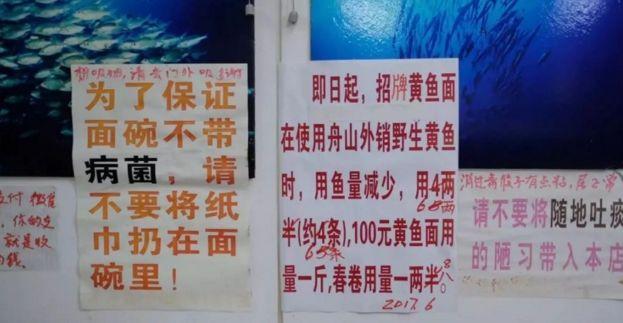 想吸烟，请去门外吸
为了保证
面碗不带
病菌，请
不要将纸
巾扔在面
碗里！
即日起，招牌黄鱼面
在使用舟山外销野生黄鱼
时，用鱼量减少，用4两
68两
半(约4条),100元黄鱼面用
65条
量一斤,春卷用量一两半。
2017.6
消过毒
请不要将随地吐痰
的陋习带入本店
支付
你的
就是收
钱.